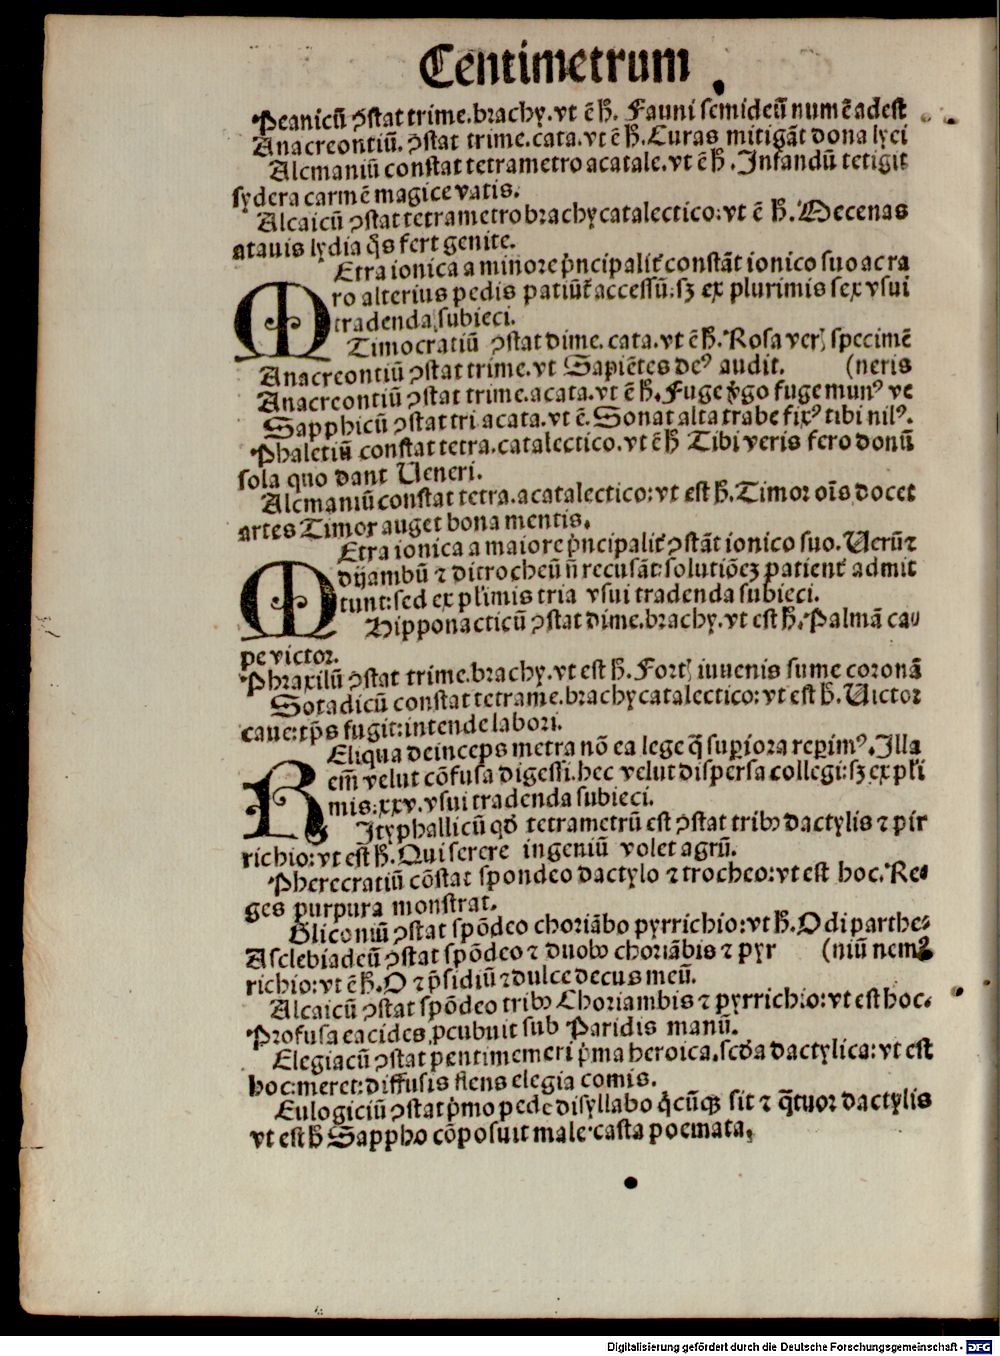 Centimetrum
Peanicũ ꝯstat trime.brachy.vt ē ħ. Fauni semideũ numẽ adest
Anacreontiũ. ꝯstat trime.cata.vt ē ħ.Curas mitigãt dona lyei
Alcmaniũ constat tetrametro acatale.vt ē ħ.Infandũ tetigit
sydera carmẽ magice vatis.
Alcaicũ ꝯstat tetrametro brachycatalectico:vt ē ħ.Mecenas
atauis lydia q̃s fert genite.
MEtra ionica a minore p̃ncipalit᷑ constãt ionico suo ac ra
ro alterius pedis patiũt᷑ accessũ:sꝫ ex plurimis sex vsui
tradenda subieci.
Timocratiũ ꝯstat dime.cata.vt ē ħ.Rosa verꝭ specimẽ
Anacreontiũ ꝯstat trime.vt Sapiẽtes deꝰ audit. (neris
Anacreontiũ ꝯstat trime.acata.vt ē ħ.Fuge v̓go fuge munꝰ ve
Sapphicũ ꝯstat tri acata.vt ē.Sonat alta trabe fixꝰ tibi nilꝰ.
Phaletiũ constat tetra.catalectico.vt ē ħ Tibi veris fero donũ
sola quo dant Veneri.
Alcmaniũ constat tetra.acatalectico:vt est ħ.Timor oĩs docet
artes Timor auget bona mentis.
MEtra ionica a maiore p̃ncipalit᷑ ꝯstãt ionico suo.Uerũ⁊
dijambũ ⁊ ditrocheũ ñ recusãt:solutiõeꝫ patient᷑ admit
tunt:sed ex pl̃imis tria vsui tradenda subieci.
Hipponacticũ ꝯstat dime.brachy.vt est ħ.Palmã ca⸗
pe victor.
Phraxilũ ꝯstat trime.brachy.vt est ħ.Fortꝭ iuuenis sume coronã
Sotadicũ constat tetrame.brachycatalectico:vt est ħ.Uictor
caue:tp̃s fugit:intende labori.
REliqua deinceps metra nõ ea lege q̃ superiora reperimꝰ.Illa
em̃ velut cõfusa digessi.hec velut dispersa collegi:sꝫ ex pl̃i
mis.xxv.vsui tradenda subieci.
Ityphallicũ qđ tetrametrũ est ꝯstat tribꝰ dactylis ⁊ pir
richio:vt est ħ.Qui serere ingeniũ volet agrũ.
Pherecratiũ cõstat spondeo dactylo ⁊ trocheo:vt est hoc.Re⸗
ges purpura monstrat.
Gliconiũ ꝯstat spõdeo choriãbo pyrrichio:vt ħ.Odi parthe⸗
Asclebiadeũ ꝯstat spõdeo ⁊ duobꝰ choriãbis ⁊ pyr (niũ nemꝰ
richio:vt ē ħ.O ⁊ p̃sidiũ ⁊ dulce decus meũ.
Alcaicũ ꝯstat spõdeo tribꝰ Choriambis ⁊ pyrrichio:vt est hoc.
Profusa eacides ꝓcubuit sub Paridis manũ.
Elegiacũ ꝯstat pentimemeri p̃ma heroica.scđa dactylica:vt est
hoc:meret:diffusis flens elegia comis.
Eulogiciũ ꝯstat p̃mo pede disyllabo q̃cũqꝫ sit ⁊ q̃tuor dactylis
vt est ħ Sappho cõposuit male casta poemata.
Digitalisierung gefördert durch die Deutsche Forschungsgemeinschaft - DFG